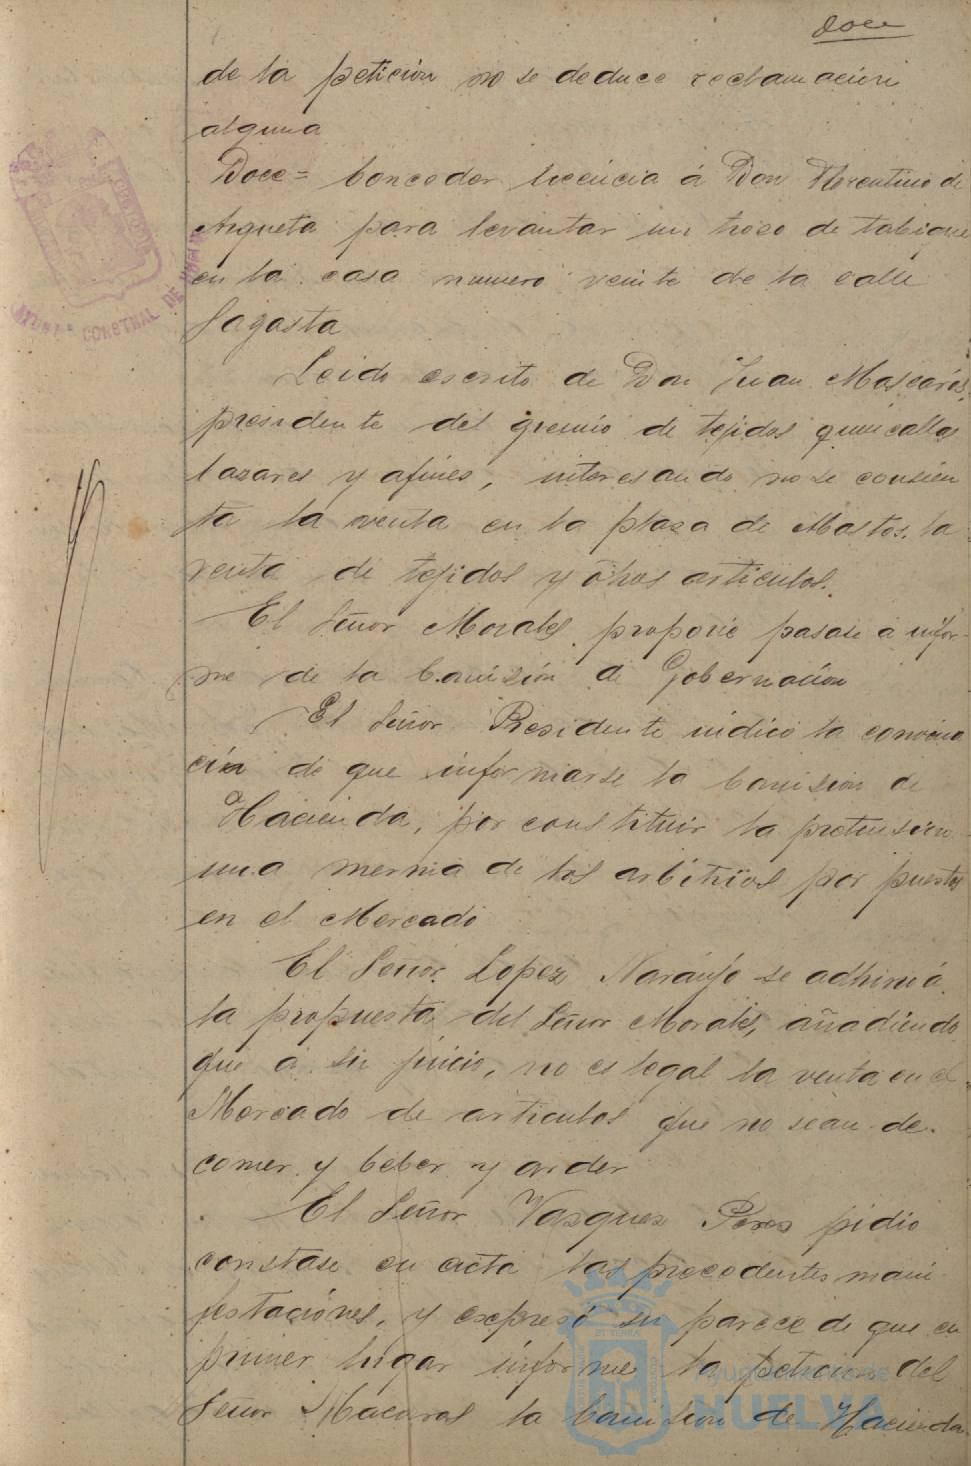 doce
de la petición no se deduce reclamación
alguna
Doce= Conceder licencia á Don Florentino de
Azqueta para levantar un trozo de tabique
en la casa numero veinte de la calle
Sagasta
Leido escrito de Don Juan Mascarós,
presidente del gremio de tejidos quincallas
bazares y afines, interesando no se consien
ta la venta en la plaza de Abastos, la
venta de tejidos y otros articulos.
El Señor Morales propone pasase á infor-
me de la Comisión de Gobernación
El Señor Presidente indicó la
ción de que informarse la Comisión de
Hacienda, por constituir la pretensión
una merma de los arbitrios por puestos
en el Mercado
El Señor Lopez Naranjo se adhirió á
la propuesta del Señor Morales, añadiendo
que á su juicio, no es legal la venta en el
Mercado de articulos que no sean de
comer y beber y arder
El Señor Vazquez Perez pidio
constase en acta las precedentes mani
festaciones, y expresó su parecer de que en
primer lugar informe la peticion del
Señor la Comisión de Hacienda
AYUNT° CONSTNAL DE HUELVA
Ayuntamiento de
HUELVA